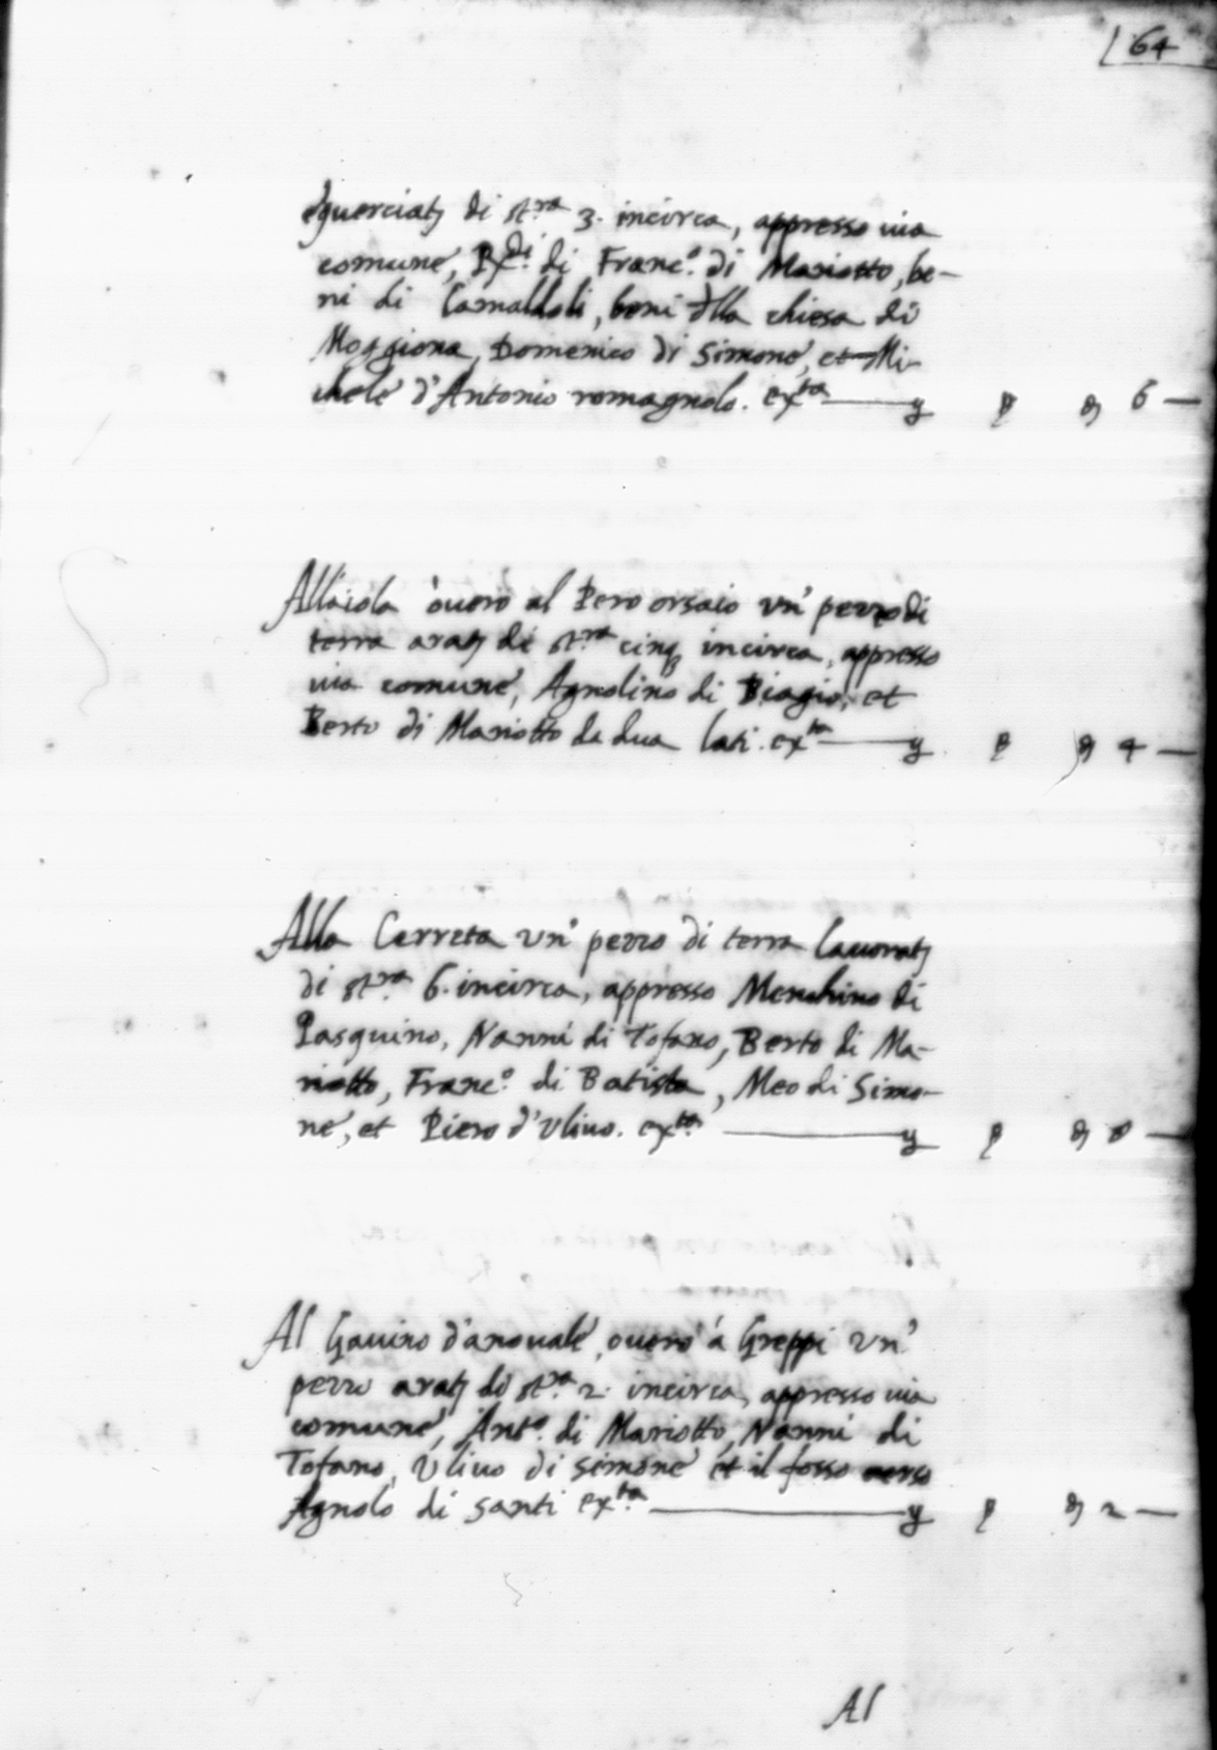 64
e querciata di st.ra 3. incirca, appresso uia
comune, Rx.di di Franc.o di Mariotto, be-
ni di Camaldoli, beni della chiesa di
Moggiona, Domenico di Simone, et Mi-
chele d'Antonio romagnolo. ex.ta
6 —
All'aiola ouero al Pero orsaio vn' pezzo di
terra arata di st.ra cinq incirca, appresso
uia comune, Agnolino di Biagio, et
Berto di Mariotto da dua lati. ex.ta
4 —
Alla Cerreta vn' pezzo di terra lauorata
di st.ra 6. incirca, appresso Menchino di
Pasquino, Nanni di Tofano, Berto di Ma-
riotto, Franc.o di Batista, Meo di Simo-
ne, et Piero d'Vliuo. ex.ta
8 —
Al Gauino d'arouale, ouero à Greppi vn'
pezzo arata di st.ra 2. incirca, appresso uia
comune, Ant.o di Mariotto, Nanni di
Tofano, Vliuo di Simone et il fosso uerso
Agnolo di Santi ex.ta
2 —
Al